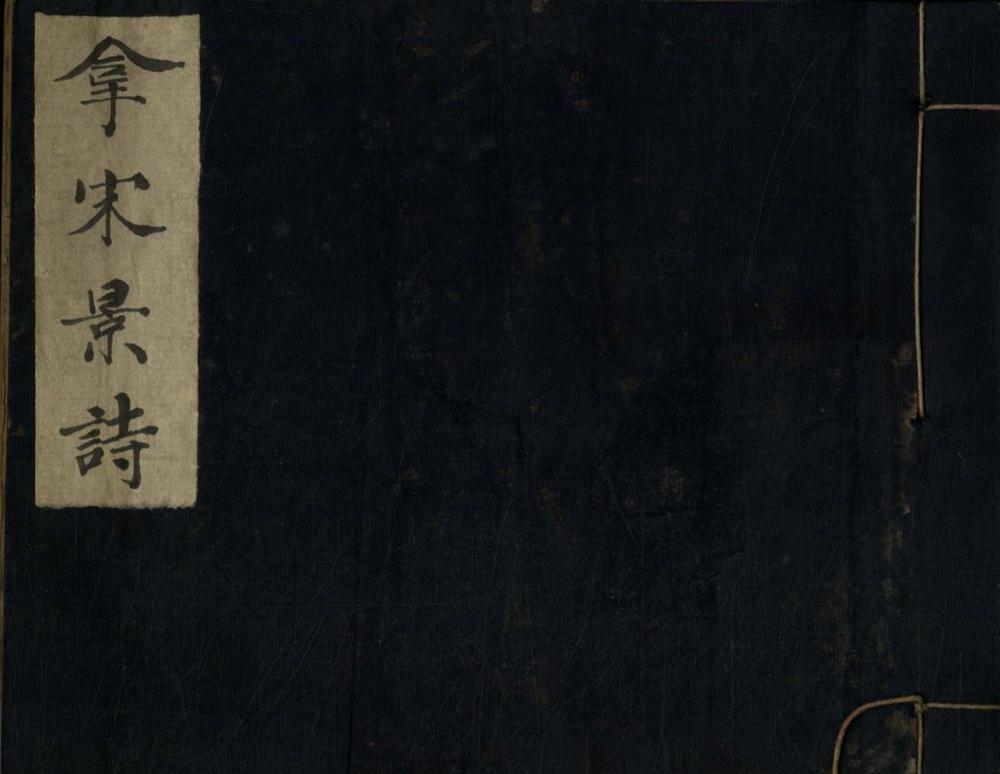 拿宋景詩